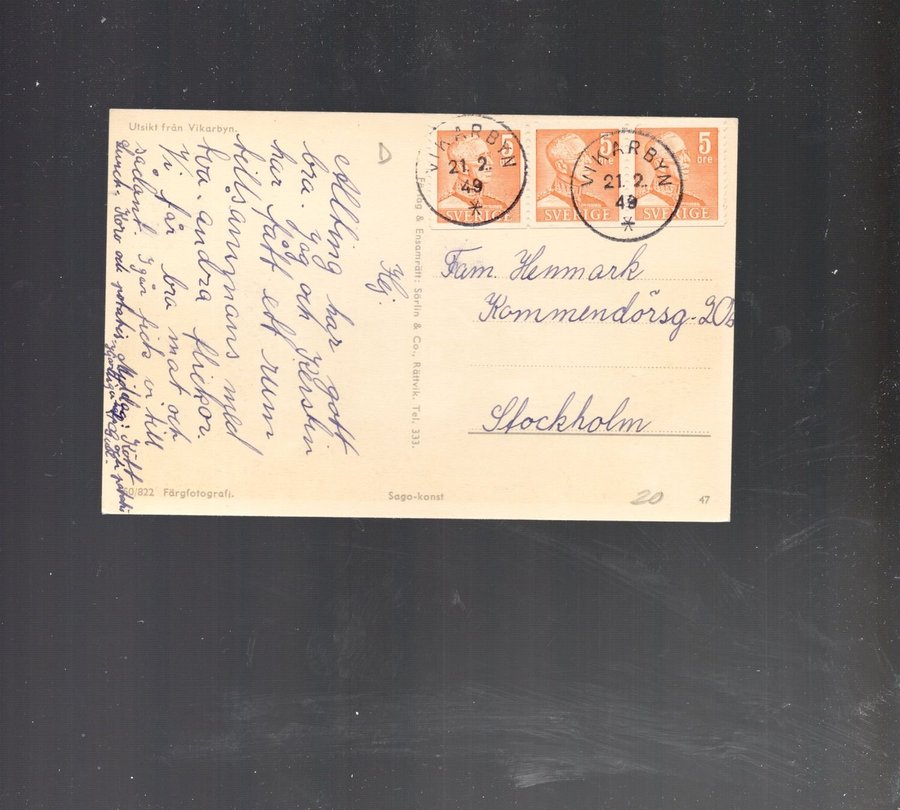 Utsikt från Vikarbyn.
VIKARBYN
21. 2.
49
VIKARBYN
21. 2.
49
5
öre
SVERIGE
5
öre
SVERIGE
5
öre
SVERIGE
Hej.
Allting har gått
bra. Jag och Kerstin
har fått ett rum
tillsammans med
två andra flickor.
Vi får bra mat och
sådant. Igår fick vi till
Lunch, Korv och potatis, Middag: Kött
och potatis
Förlag & Ensamrätt: Sörlin & Co., Rättvik. Tel. 333.
Fam. Henmark
Kommendörsg. 20B
Stockholm
50/822 Färgfotografi.
Sago-konst
20
47